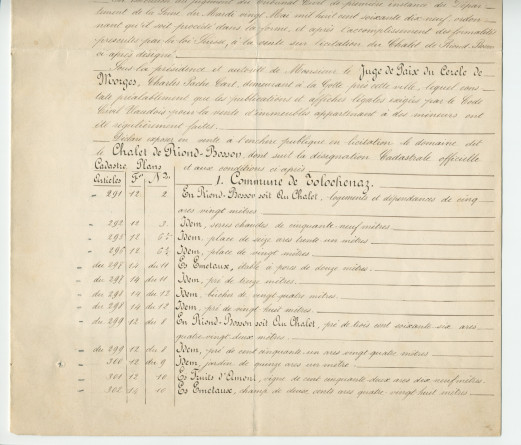 un extrait du jugement du Tribunal Civil de première instance du Dépar-
tement de la Seine du Mardi vingt Mai mil huit cent soixante dix-neuf ordon-
nant qu'il soit procédé dans la forme, et après l'accomplissement des formalités
prescrites par la loi Suisse, à la vente sur licitation du Chalet de Riond Bosson
ci après désigné.
Sous la présidence et autorité de Monsieur le Juge de Paix du Cercle de
Morges, Charles demeurant à la près cette ville, lequel cons-
tate préalablement que les publications et affiches légales exigées par le Code
Civil Vaudois pour la vente d'immeubles appartenant à des mineurs ont
été régulièrement faites.
exposer en vente à l'enchère publique en licitation le domaine dit
le Chalet de Riond-Bosson, dont suit la désignation Cadastrale officielle
Cadastre Plans et aux conditions ci après
Articles Fo No 1. Commune de Tolochenaz.
" 291 12 2 En Riond-Bosson soit Au Chalet, logements et dépendances de cinq
ares vingt mètres
" 292 12 3 Idem, serres chaudes de cinquante neuf mètres
" 293 12 Idem, place de sept ares trente un mètres
" 296 12 Idem, place de vingt mètres
" du 297 14 du 11 Es Emetaux, à porcs de douze mètres
" du 297 14 du 11 Idem, pré de treize mètres
" du 298 14 du 12 Idem, bûcher de vingt quatre mètres
" du 298 14 du 12 Idem, pré de vingt huit mètres
" du 299 12 du 1 En Riond-Bosson soit Au Chalet, pré de trois cent soixante six ares
quatre vingt deux mètres
" du 299 12 du 1 Idem, pré de cent cinquante un ares vingt quatre mètres
" 300 12 du 9 Idem, jardin de quinze ares un mètre
" 301 12 10 Es Fruits d'Aimoni, vigne de cent cinquante deux ares dix neuf mètres
" 302 14 10 Es Emetaux, champ de deux cents ares quatre vingt huit mètres